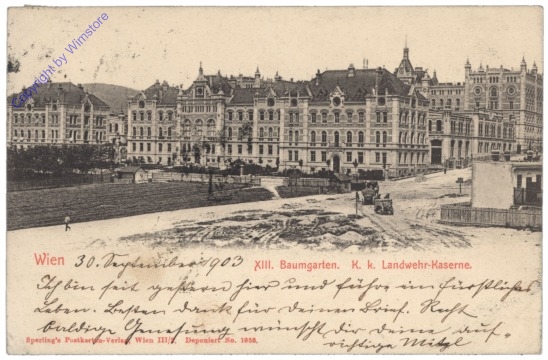 Copyright by Wimstore
Wien 30. September 903
XIII. Baumgarten. K. k. Landwehr-Kaserne.
Ich bin seit gestern hier und führe ein fürstliches
Leben. Besten Dank für deinen Brief. Recht
baldige Genesung wünscht dir deine auf-
richtige Mitzl
Sperling's Postkarten-Verlag, Wien III/2. Deponiert No. 1058.